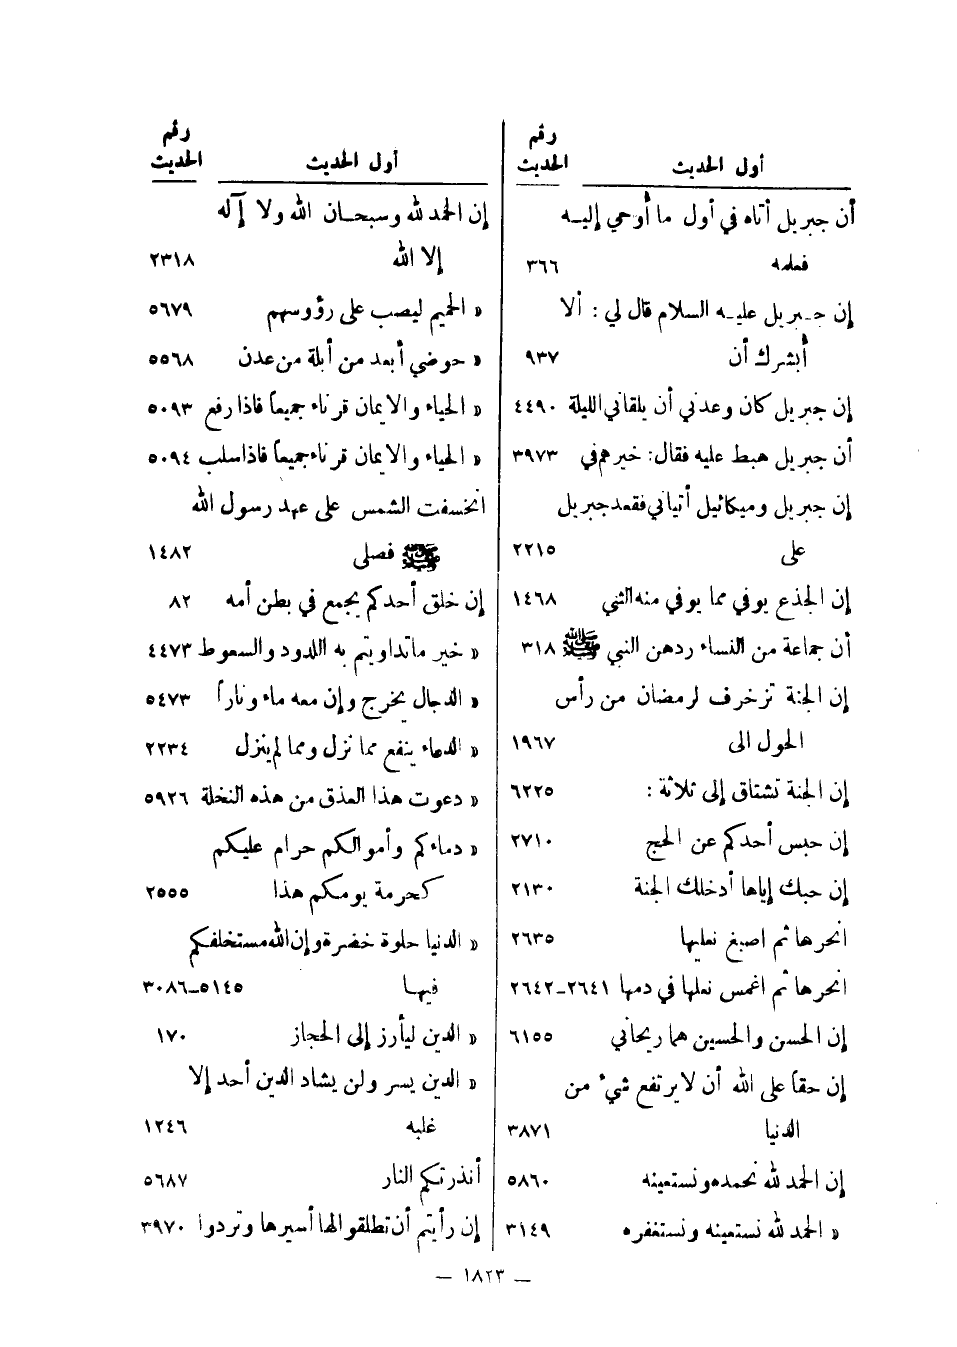 رقم
أول الحديث الحديث
أن جبريل أتاه في أول ما أُوحي إليه
فعلمه ٣٦٦
إن جبريل عليه السلام قال لي : ألا
أُبشرك أن ٩٣٧
إن جبريل كان وعدني أن يلقاني الليلة ٤٤٩٠
أن جبريل هبط عليه فقال: خيرهم في ٣٩٧٣
إن جبريل وميكائيل أتياني فقعد جبريل
على ٢٢١٥
إن الجذع يوفي مما يوفي منه الثني ١٤٦٨
أن جماعة من النساء ردهن النبي ﷺ ٣١٨
إن الجنة تزخرف لرمضان من رأس
الحول الى ١٩٦٧
إن الجنة تشتاق إلى ثلاثة : ٦٢٢٥
إن حبس أحدكم عن الحج ٢٧١٠
إن حبك إياها أدخلك الجنة ٢١٣٠
انحرها ثم اصبغ نعليها ٢٦٣٥
انحرها ثم اغمس نعلها في دمها ٢٦٤١-٢٦٤٢
إن الحسن والحسين هما ريحاني ٦١٥٥
إن حقاً على الله أن لا يرتفع شيء من
الدنيا ٣٨٧١
إن الحمد لله نحمده ونستعينه ٥٨٦٠
« الحمد لله نستعينه ونستغفره ٣١٤٩
رقم
أول الحديث الحديث
إن الحمد لله وسبحان الله ولا إله
إلا الله ٢٣١٨
« الحميم ليصب على رؤوسهم ٥٦٧٩
« حوضي أبعد من أيلة من عدن ٥٥٦٨
« الحياء والايمان قرناء جميعاً فاذا رفع ٥٠٩٣
« الحياء والايمان قرناء جميعاً فاذا سلب ٥٠٩٤
انخسفت الشمس على عهد رسول الله
ﷺ فصلى ١٤٨٢
إن خلق أحدكم يجمع في بطن أمه ٨٢
« خير ما تداويتم به اللدود والسعوط ٤٤٧٣
« الدجال يخرج وإن معه ماء وناراً ٥٤٧٣
« الدعاء ينفع مما نزل ومما لم ينزل ٢٢٣٤
« دعوت هذا العذق من هذه النخلة ٥٩٢٦
« دماءكم وأموالكم حرام عليكم
كحرمة يومكم هذا ٢٥٥٥
« الدنيا حلوة خضرة وإن الله مستخلفكم
فيها ٥١٤٥-٣٠٨٦
« الدين ليأرز إلى الحجاز ١٧٠
« الدين يسر ولن يشاد الدين أحد إلا
غلبه ١٢٤٦
أنذرتكم النار ٥٦٨٧
إن رأيتم أن تطلقوا لها أسيرها وتردوا ٣٩٧٠
— ١٨٢٣ —